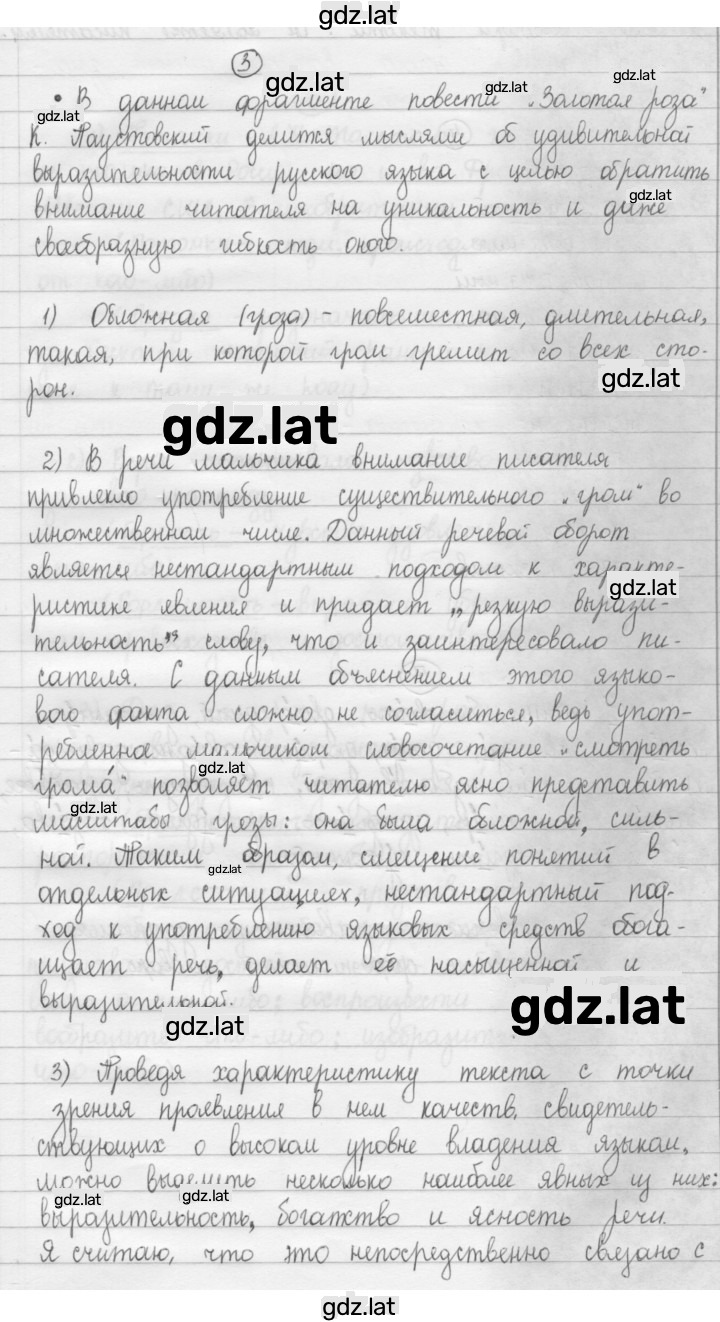 gdz.lat
3
gdz.lat
gdz.lat
gdz.lat
gdz.lat
• В данном фрагменте повести „Золотая роза"
К. Паустовский делится мыслями об удивительной
выразительности русского языка с целью обратить
gdz.lat
внимание читателя на уникальность и даже
своеобразную гибкость оного.
1) Обложная (гроза) – повсеместная, длительная,
такая, при которой гром гремит со всех сто-
gdz.lat
рон.
gdz.lat
2) В речи мальчика внимание писателя
привлекло употребление существительного „гром" во
множественном числе. Данный речевой оборот
является нестандартным подходом к характе-
gdz.lat
ристике явления и придает „резкую вырази-
тельность" слову, что и заинтересовало пи-
сателя. С данным объяснением этого языко-
вого факта сложно не согласиться, ведь упот-
ребленное мальчиком словосочетание „смотреть
gdz.lat
грома́" позволяет читателю ясно представить
gdz.lat
масштабы грозы: она была обложной, силь-
ной. Таким образом, смещение понятий в
gdz.lat
отдельных ситуациях, нестандартный под-
ход к употреблению языковых средств обога-
щает речь, делает её насыщенной и
выразительной.
gdz.lat
gdz.lat
3) Проведя характеристику текста с точки
зрения проявления в нем качеств, свидетель-
ствующих о высоком уровне владения языком,
можно выделить несколько наиболее явных из них:
gdz.lat
gdz.lat
выразительность, богатство и ясность речи.
Я считаю, что это непосредственно связано с
gdz.lat